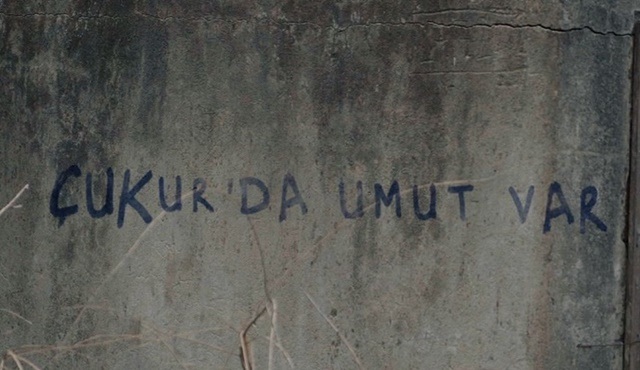 ÇUKUR'DA UMUT VAR